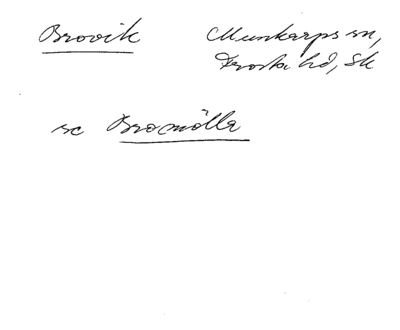 Brovik Munkarps sn,
Frosta hd, Sk
se Bromölla